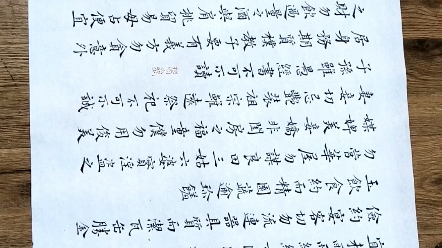 儉約宴客切勿流連器具質而潔瓦缶勝金
玉飲食約而精園蔬逾珍饈
勿營華屋勿謀良田三姑六婆實淫盜之
媒婢美妾嬌非閨房之福童僕勿用俊美
妻妾切忌艷妝祖宗雖遠祭祀不可不誠
子孫雖愚經書不可不讀
居身務期質樸教子要有義方勿貪意外
之財勿飲過量之酒與肩挑貿易毋占便宜